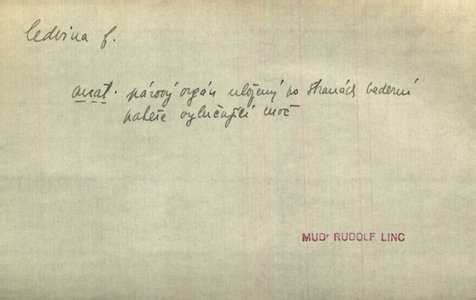 ledvina f.
anat. párový orgán uložený po stranách bederní
páteře vylučující moč
MUDr RUDOLF LINC